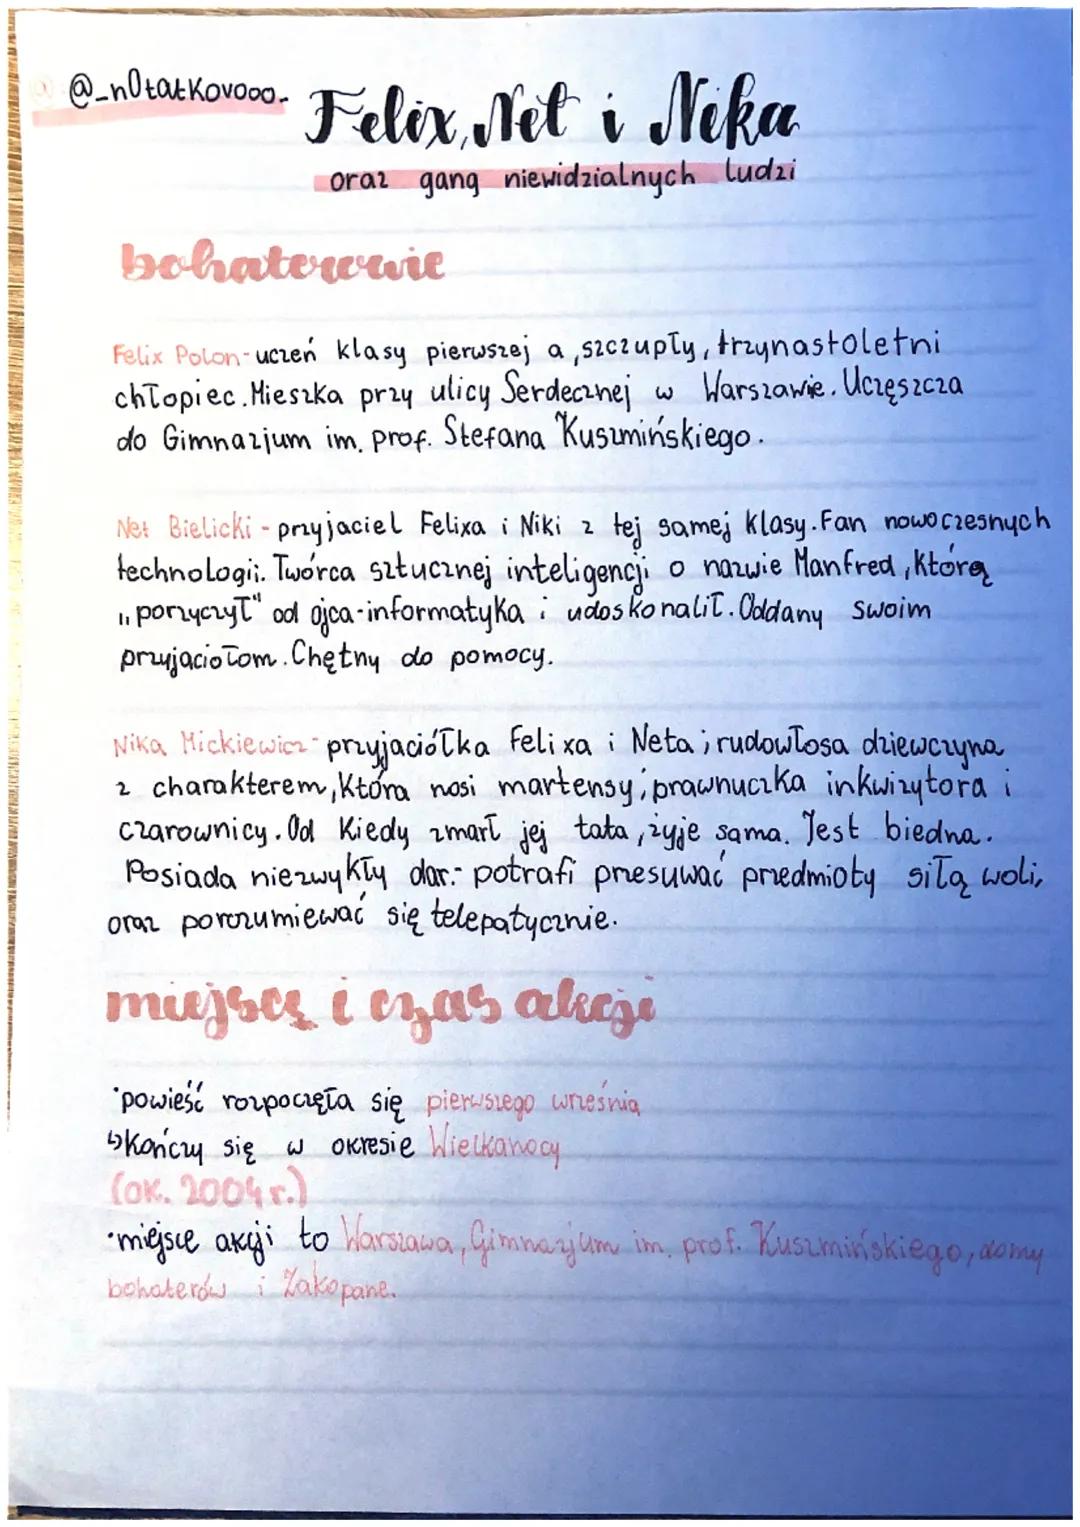 @_n0tatkovooo_
Felix, Net i Nika
oraz gang niewidzialnych ludzi
bohaterowie
Felix Polon - uczeń klasy pierwszej a, szczupły, trzynastoletni
chłopiec. Mieszka przy ulicy Serdecznej w Warszawie. Uczęszcza
do Gimnazjum im. prof. Stefana Kuszmińskiego.
Net Bielicki - przyjaciel Felixa i Niki z tej samej klasy. Fan nowoczesnych
technologii. Twórca sztucznej inteligencji o nazwie Manfred, którą
"porzyczył" od ojca-informatyka i udoskonalił. Oddany swoim
przyjaciołom. Chętny do pomocy.
Nika Mickiewicz - przyjaciółka Felixa i Neta; rudowłosa dziewczyna
z charakterem, która nosi martensy; prawnuczka inkwizytora i
czarownicy. Od kiedy zmarł jej tata, żyje sama. Jest biedna.
Posiada niezwykły dar: potrafi przesuwać przedmioty siłą woli,
oraz porozumiewać się telepatycznie.
miejsce i czas akcji
•powieść rozpoczęła się pierwszego września
↳kończy się w okresie Wielkanocy
(ok. 2004 r.)
•miejsce akcji to Warszawa, Gimnazjum im. prof. Kuszmińskiego, domy
bohaterów i Zakopane.